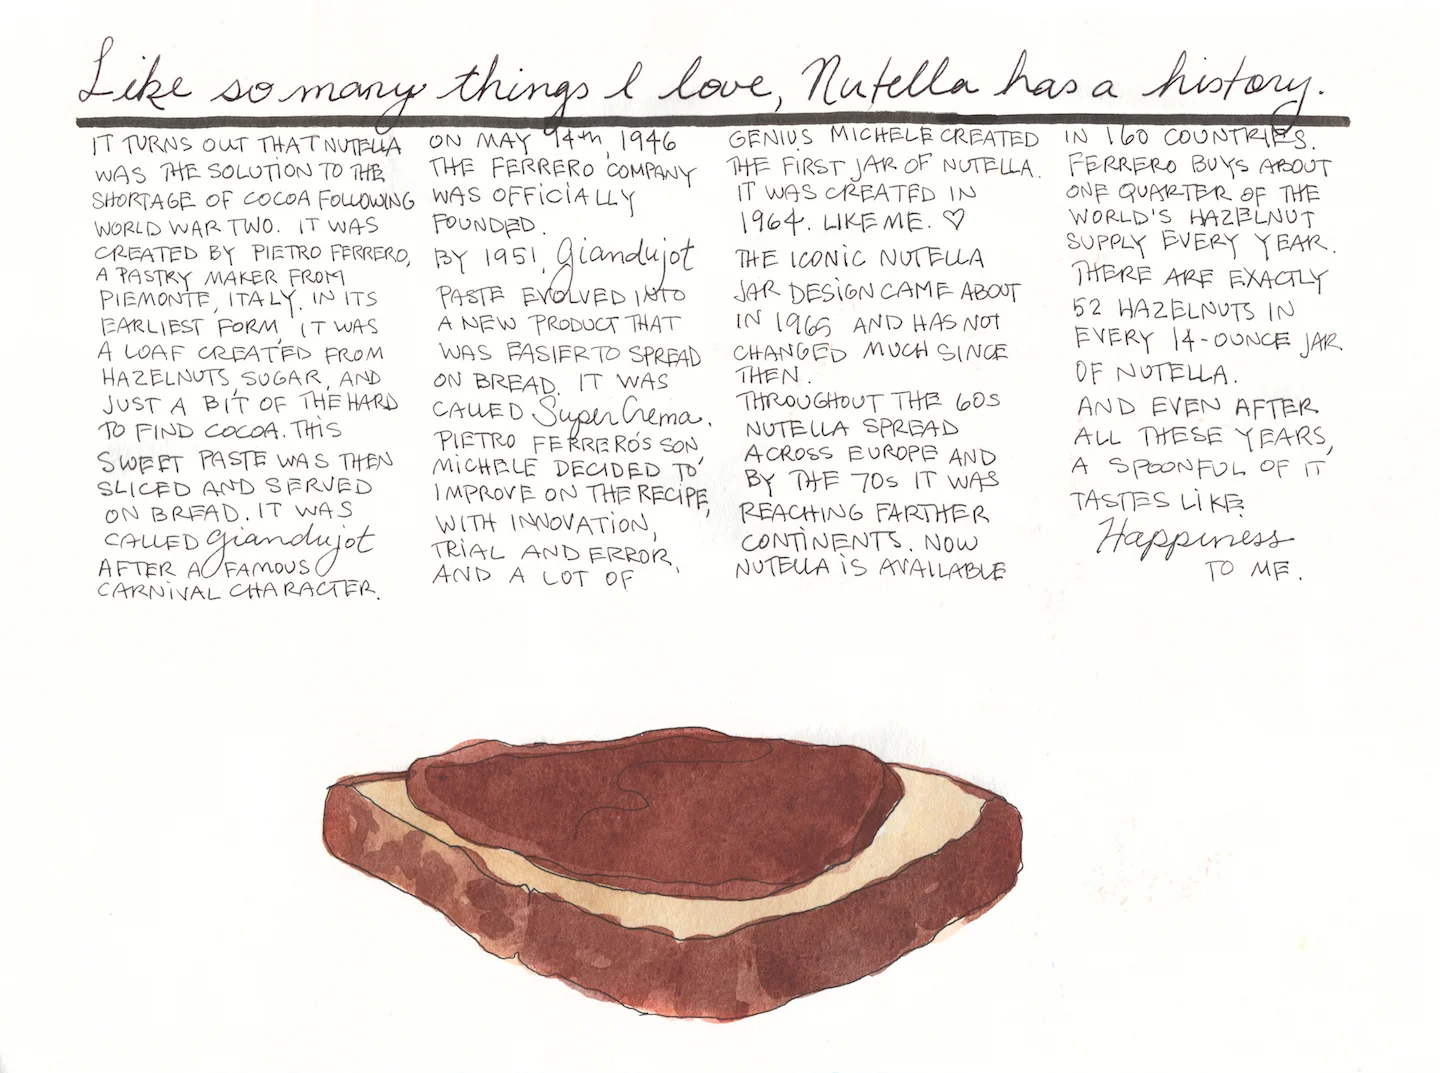 Like so many things I love, Nutella has a history.
IT TURNS OUT THAT NUTELLA
WAS THE SOLUTION TO THE
SHORTAGE OF COCOA FOLLOWING
WORLD WAR TWO. IT WAS
CREATED BY PIETRO FERRERO,
A PASTRY MAKER FROM
PIEMONTE, ITALY. IN ITS
EARLIEST FORM, IT WAS
A LOAF CREATED FROM
HAZELNUTS, SUGAR, AND
JUST A BIT OF THE HARD
TO FIND COCOA. THIS
SWEET PASTE WAS THEN
SLICED AND SERVED
ON BREAD. IT WAS
CALLED Giandujot
AFTER A FAMOUS
CARNIVAL CHARACTER.
ON MAY 14th, 1946
THE FERRERO COMPANY
WAS OFFICIALLY
FOUNDED.
BY 1951, Giandujot
PASTE EVOLVED INTO
A NEW PRODUCT THAT
WAS EASIER TO SPREAD
ON BREAD. IT WAS
CALLED SuperCrema.
PIETRO FERRERO'S SON,
MICHELE DECIDED TO
IMPROVE ON THE RECIPE,
WITH INNOVATION,
TRIAL AND ERROR,
AND A LOT OF
GENIUS MICHELE CREATED
THE FIRST JAR OF NUTELLA.
IT WAS CREATED IN
1964. LIKE ME. ♡
THE ICONIC NUTELLA
JAR DESIGN CAME ABOUT
IN 1965 AND HAS NOT
CHANGED MUCH SINCE
THEN.
THROUGHOUT THE 60S
NUTELLA SPREAD
ACROSS EUROPE AND
BY THE 70s IT WAS
REACHING FARTHER
CONTINENTS. NOW
NUTELLA IS AVAILABLE
IN 160 COUNTRIES.
FERRERO BUYS ABOUT
ONE QUARTER OF THE
WORLD'S HAZELNUT
SUPPLY EVERY YEAR.
THERE ARE EXACTLY
52 HAZELNUTS IN
EVERY 14-OUNCE JAR
OF NUTELLA.
AND EVEN AFTER
ALL THESE YEARS,
A SPOONFUL OF IT
TASTES LIKE
Happiness
TO ME.